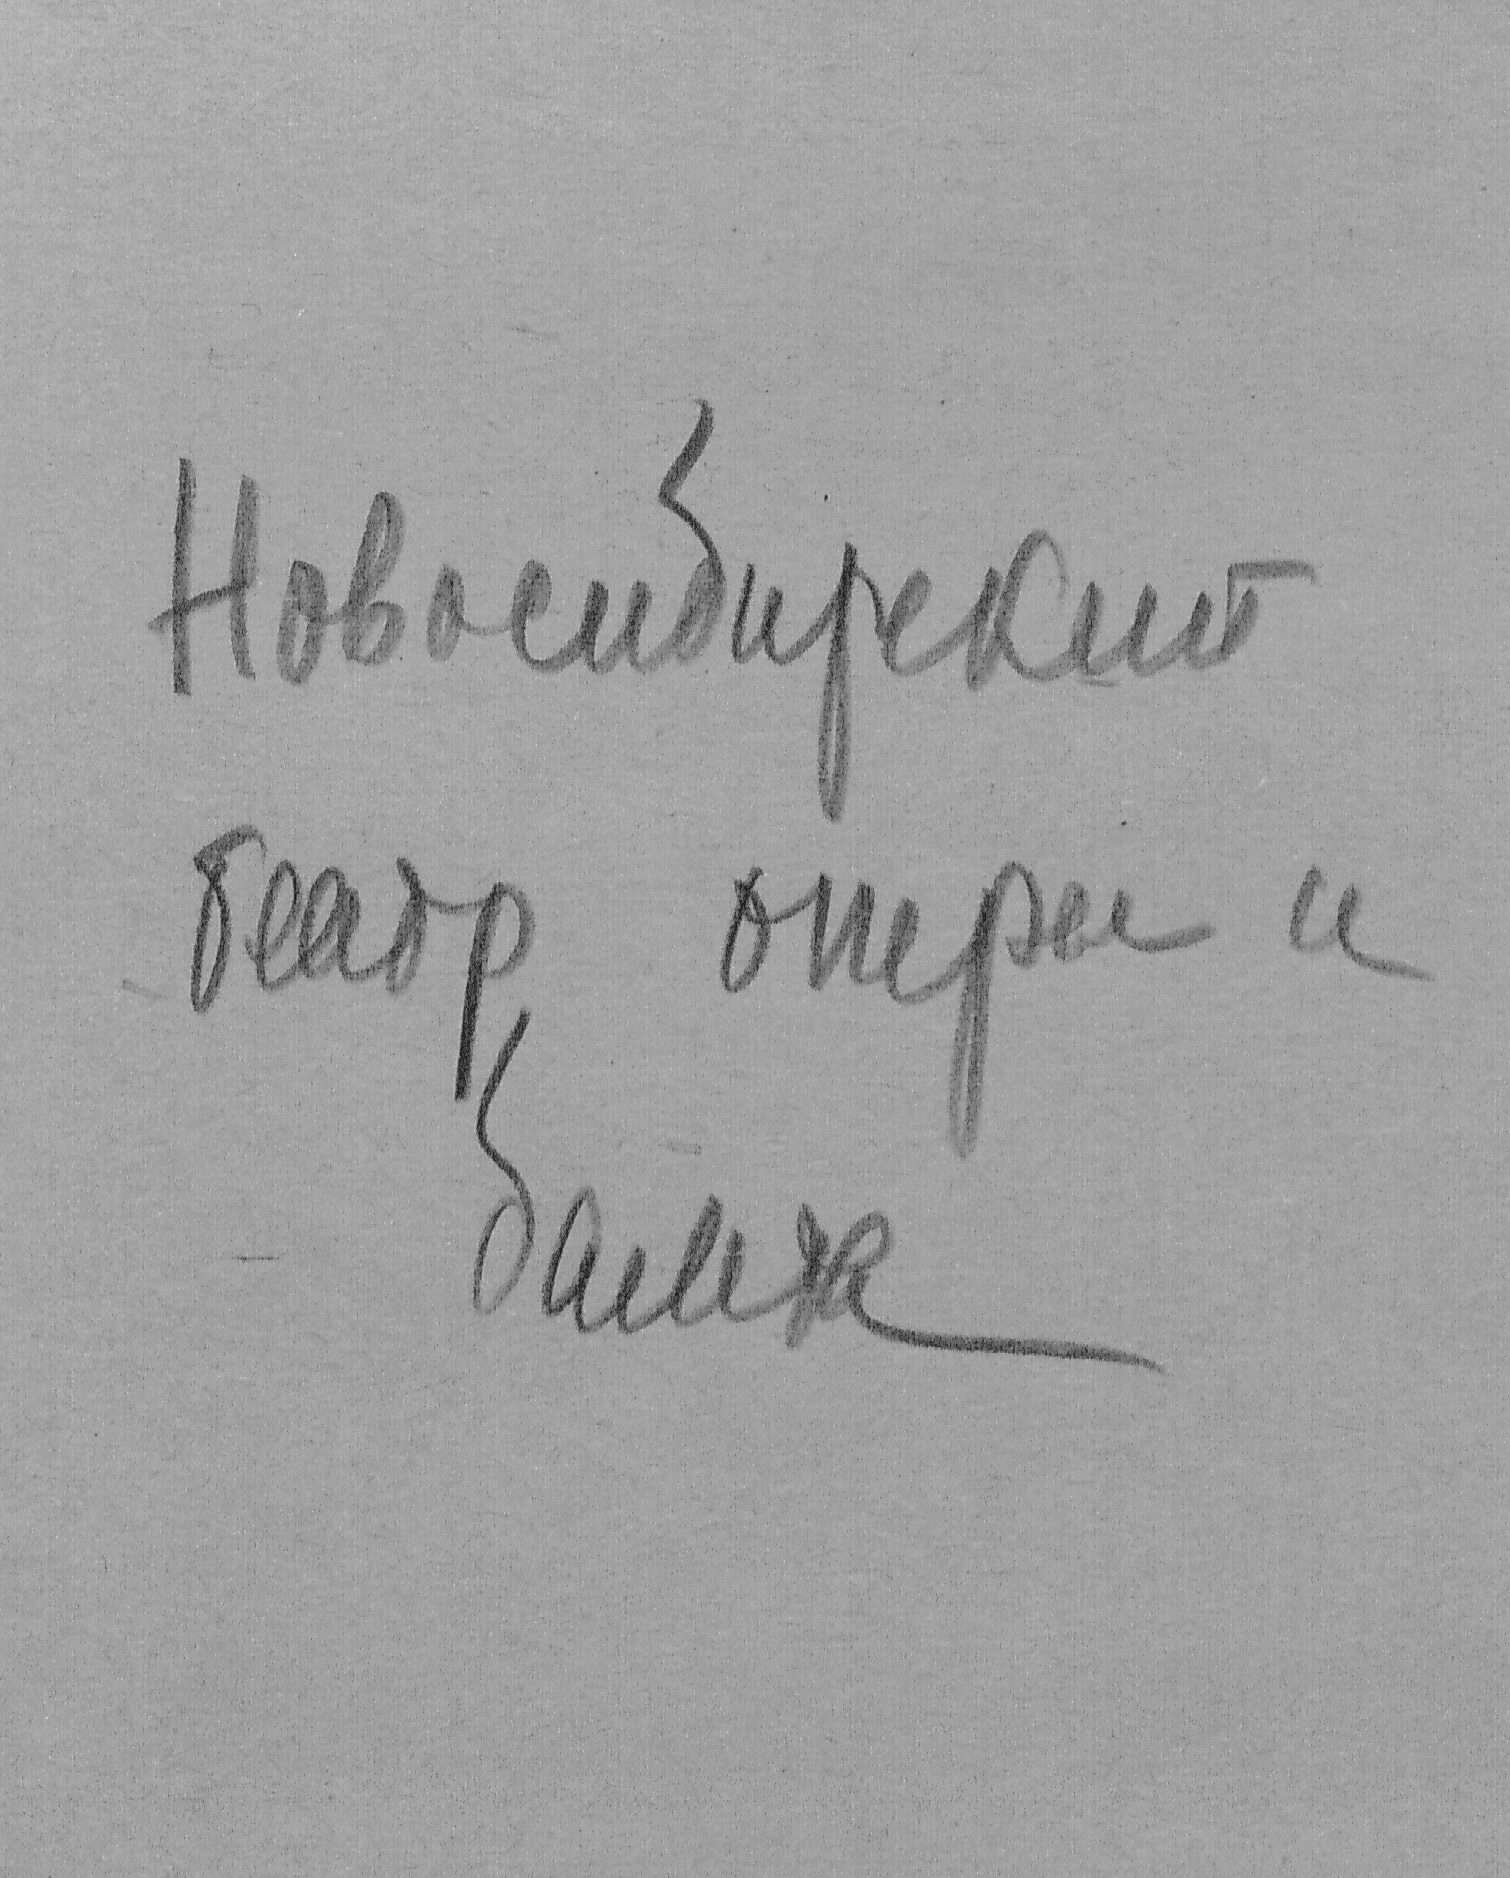 Новосибирский
театр оперы и
балета